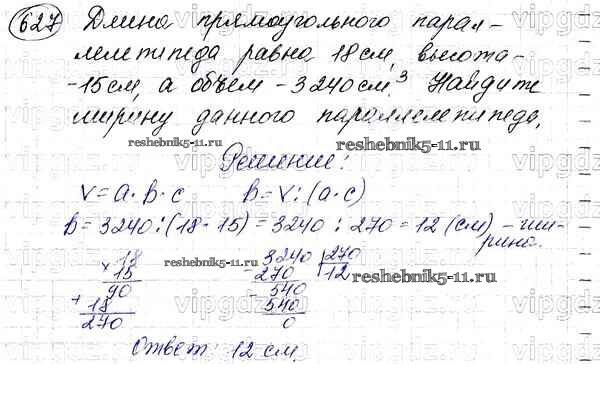 627 Длина прямоугольного парал-
лелепипеда равна 18 см, высота-
-15 см, а объём - 3240 см.³ Найдите
ширину данного параллелепипеда.
reshebnik5-11.ru
reshebnik5-11.ru
Решение:
V = a · b · c b = V : (a · c)
b = 3240 : (18 · 15) = 3240 : 270 = 12 (см) - ши-
рина.
× 18 3240 270
15 - 270 12
90 540
+ 18 540
270 0
reshebnik5-11.ru
reshebnik5-11.ru
Ответ: 12 см.
vipgdz